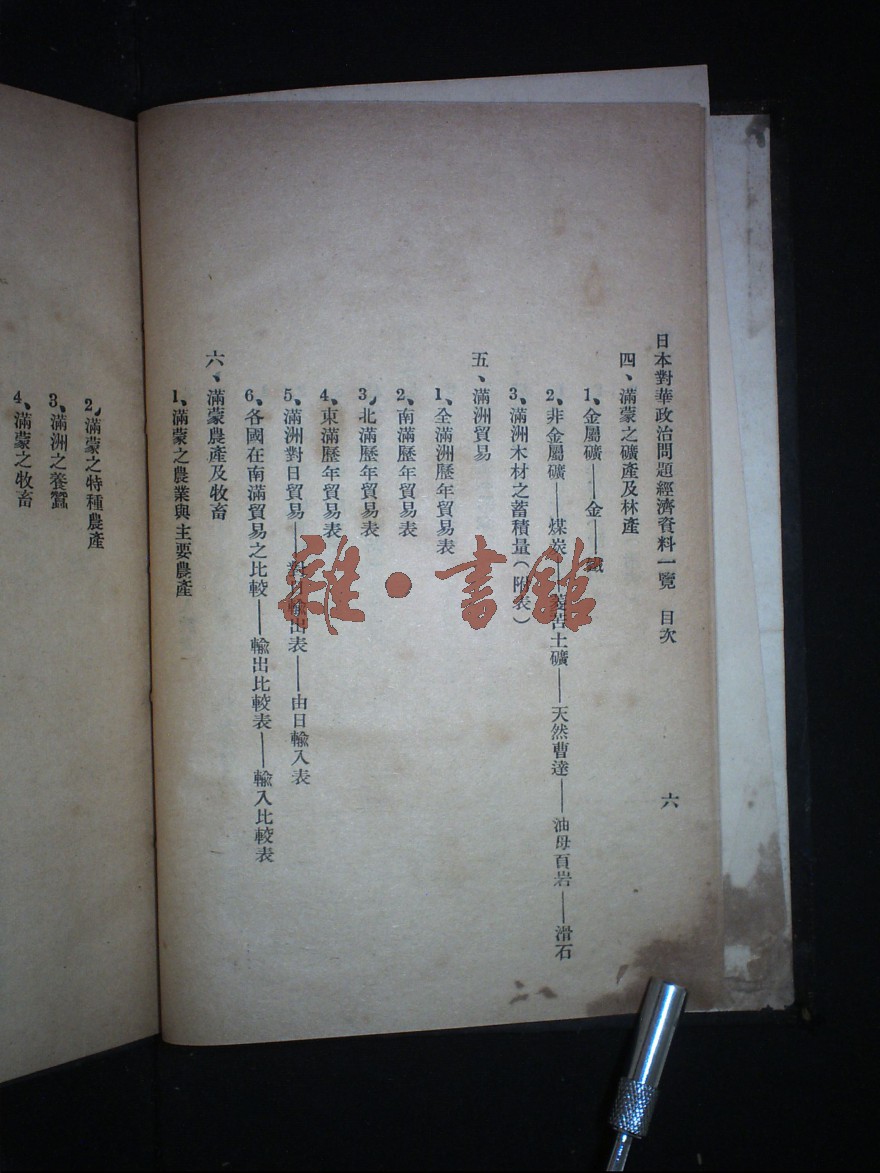 日本對華政治問題經濟資料一覽　目次　六
四、滿蒙之礦產及林產
1、金屬礦——金——鐵
2、非金屬礦——煤炭——菱苦土礦——天然曹達——油母頁岩——滑石
3、滿洲木材之蓄積量（附表）
五、滿洲貿易
1、全滿洲歷年貿易表
2、南滿歷年貿易表
3、北滿歷年貿易表
4、東滿歷年貿易表
5、滿洲對日貿易——對日輸出表——由日輸入表
6、各國在南滿貿易之比較——輸出比較表——輸入比較表
六、滿蒙農產及牧畜
1、滿蒙之農業與主要農產
2、滿蒙之特種農產
3、滿洲之養蠶
4、滿蒙之牧畜
雜·書館